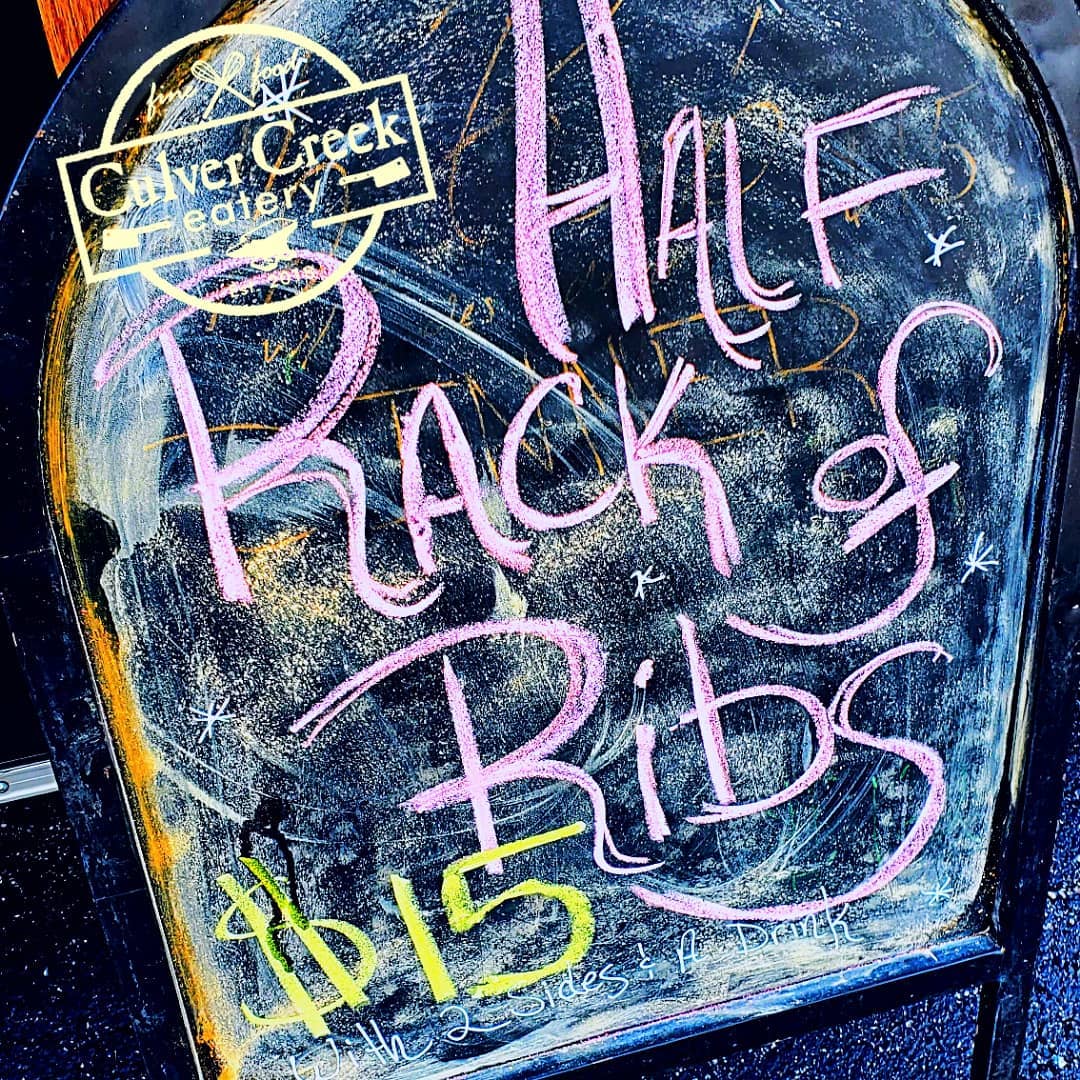 fine food
Culver Creek
eatery
2019
HALF
RACK of
Ribs
$15
With 2 Sides & A Drink